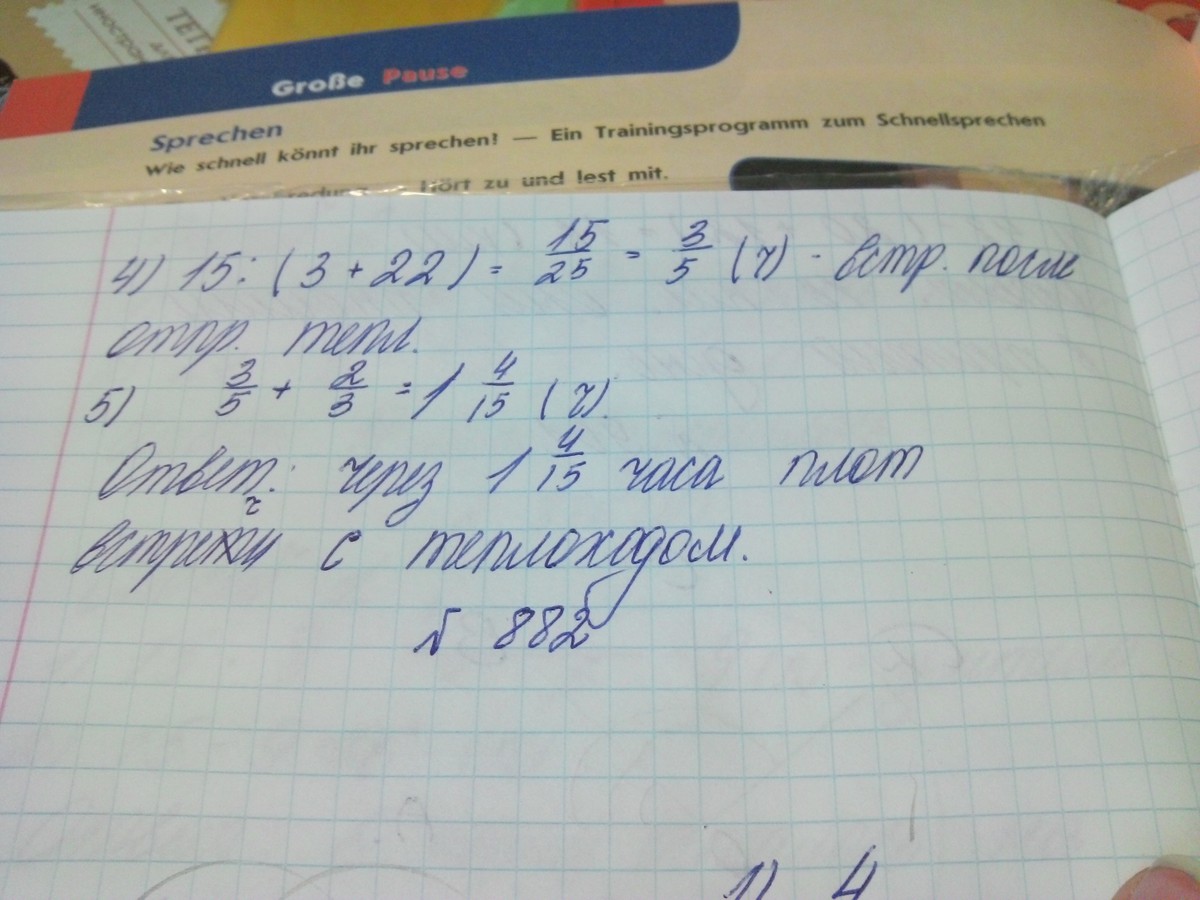 ТЕТ
ИНОСТРА
ДЛ
Große Pause
Sprechen
Wie schnell könnt ihr sprechen? — Ein Trainingsprogramm zum Schnellsprechen
Hört zu und lest mit.
4) 15:(3+22)= 15/25 = 3/5 (ч) - встр. после
отпр. тепл.
5) 3/5 + 2/3 = 1 4/15 (ч).
Ответ: через 1 4/15 часа плот
встречи с теплоходом.
№ 882
1) 4